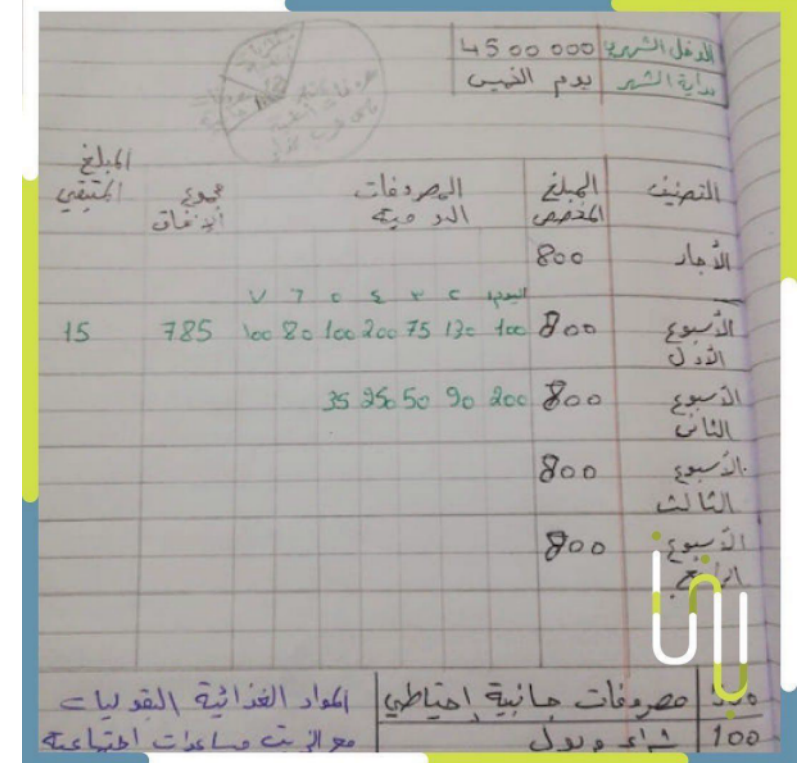 الدخل الشهري 4500 000
بداية الشهر يوم الخميس
التصنيف المبلغ المخصص المصروفات اليومية مجموع الإنفاق المبلغ المتبقي
الأجار 800
اليوم ١ ٢ ٣ ٤ ٥ ٦ ٧
الأسبوع الأول 800 100 130 75 200 100 80 100 785 15
الأسبوع الثاني 800 200 90 50 250 35
الأسبوع الثالث 800
الأسبوع الرابع 800
مصروفات جانبية إحتياطي المواد الغذائية البقوليات
100 مع الزيت مساعدات اجتماعية